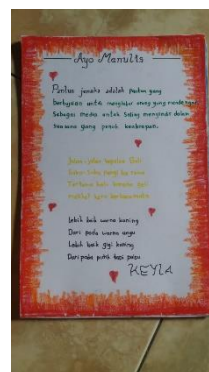 Ayo Menulis
Pantun jenaka adalah pantun yang
bertujuan untuk menghibur orang yang mendengar
Sebagai media untuk saling menyindir dalam
suasana yang penuh keakraban.
Jalan-jalan
pergi ke
Lebih baik warna kuning
Dari pada warna ungu
Lebih baik gigi kuning
Daripada putih tapi palsu
KEYLA